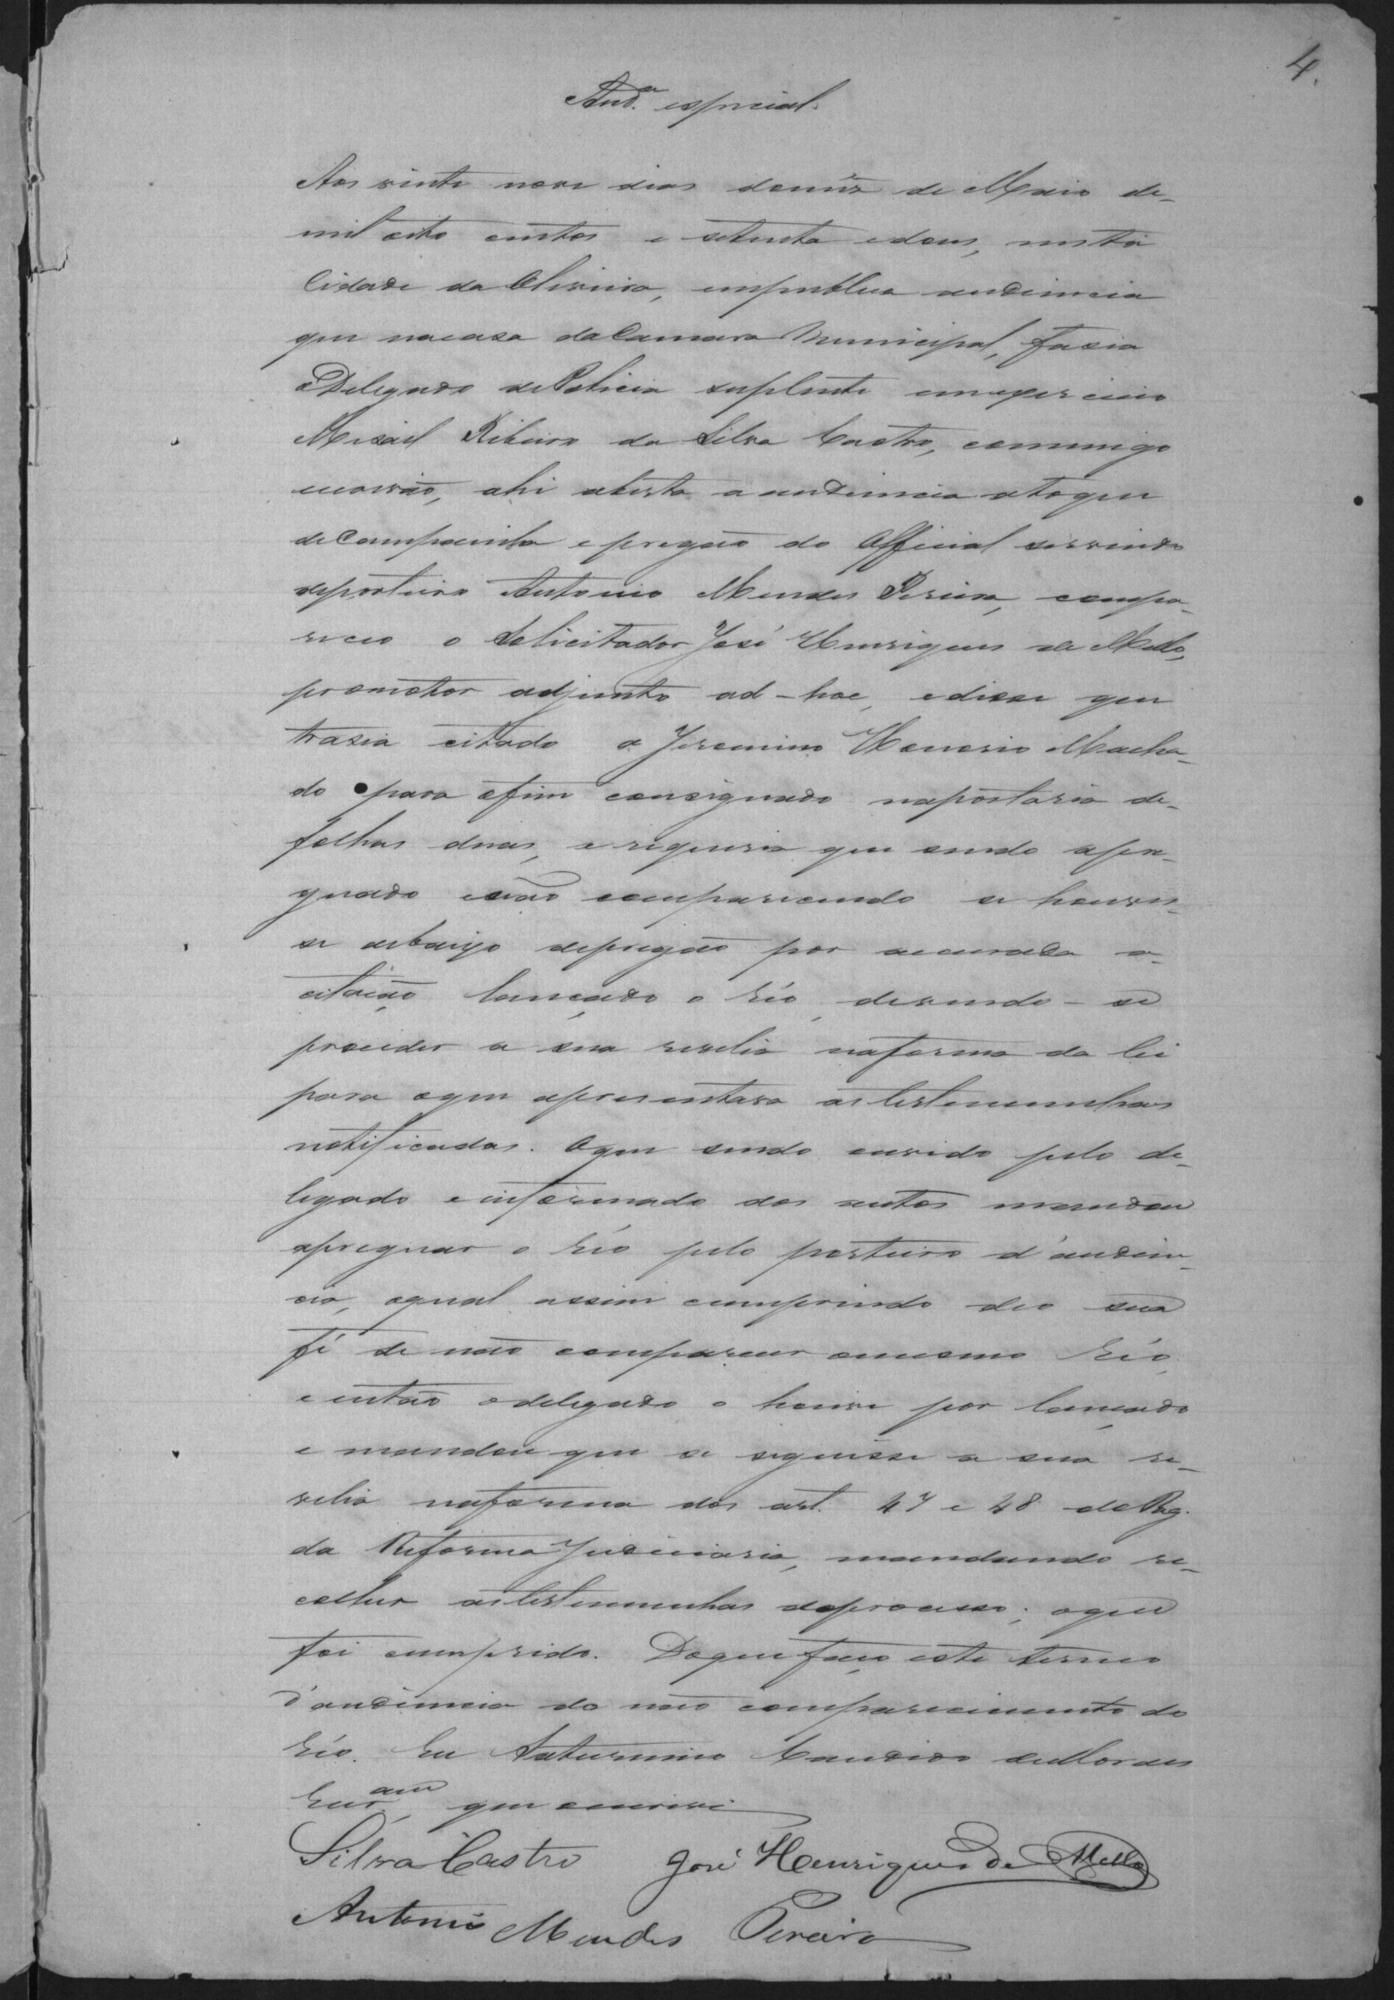 4.
Aud.a especial.
Aos vinte nove dias domez de Maio de-
mil oito centos e setenta edous, nesta
Cidade da Oliveira, empublica audiencia
que nacasa daCamara Municipal, fasia
oDelegado dePolicia suplente emexercicio
Misael Ribeiro da Silva Castro, commigo
escrivão, ahi aberta a audiencia atoque
decampainha epregão do Official servindo
deporteiro Antonio Mendes Pereira, compa-
receo o Solicitador José Henriques de Mello,
promotor adjunto ad-hoc, edisse que
trasia citado a Jeronimo Honorio Macha-
do para ofim consignado naportaria de-
folhas duas, e requeria que sendo apre-
guado enão comparecendo se houves-
se debaixo depregão por accusada a-
citação, lançado o réo, devendo-se
proceder a sua revelia naforma da lei
para oque apresentava astestemunhas
notificadas. Oque sendo ouvido pelo de-
legado e informado dos autos mandou
apreguar o réo pelo porteiro d'audien-
cia, oqual assim cumprindo deo sua
fé de não comparecer omesmo réo,
e então odelegado o houve por lançado
e mandou que se seguisse a sua re-
velia naforma dos art. 47 e 48 do Reg.
da Reforma Judiciaria, mandando re-
colher astestemunhas doprocesso; oque
foi cumprido. Doque faço este termo
d'audiencia do não comparecimento do
réo. Eu Saturnino Candido deMoraes
que escrevi
Silva Castro José Henriques de Mello
Antonio Mendes Pereira